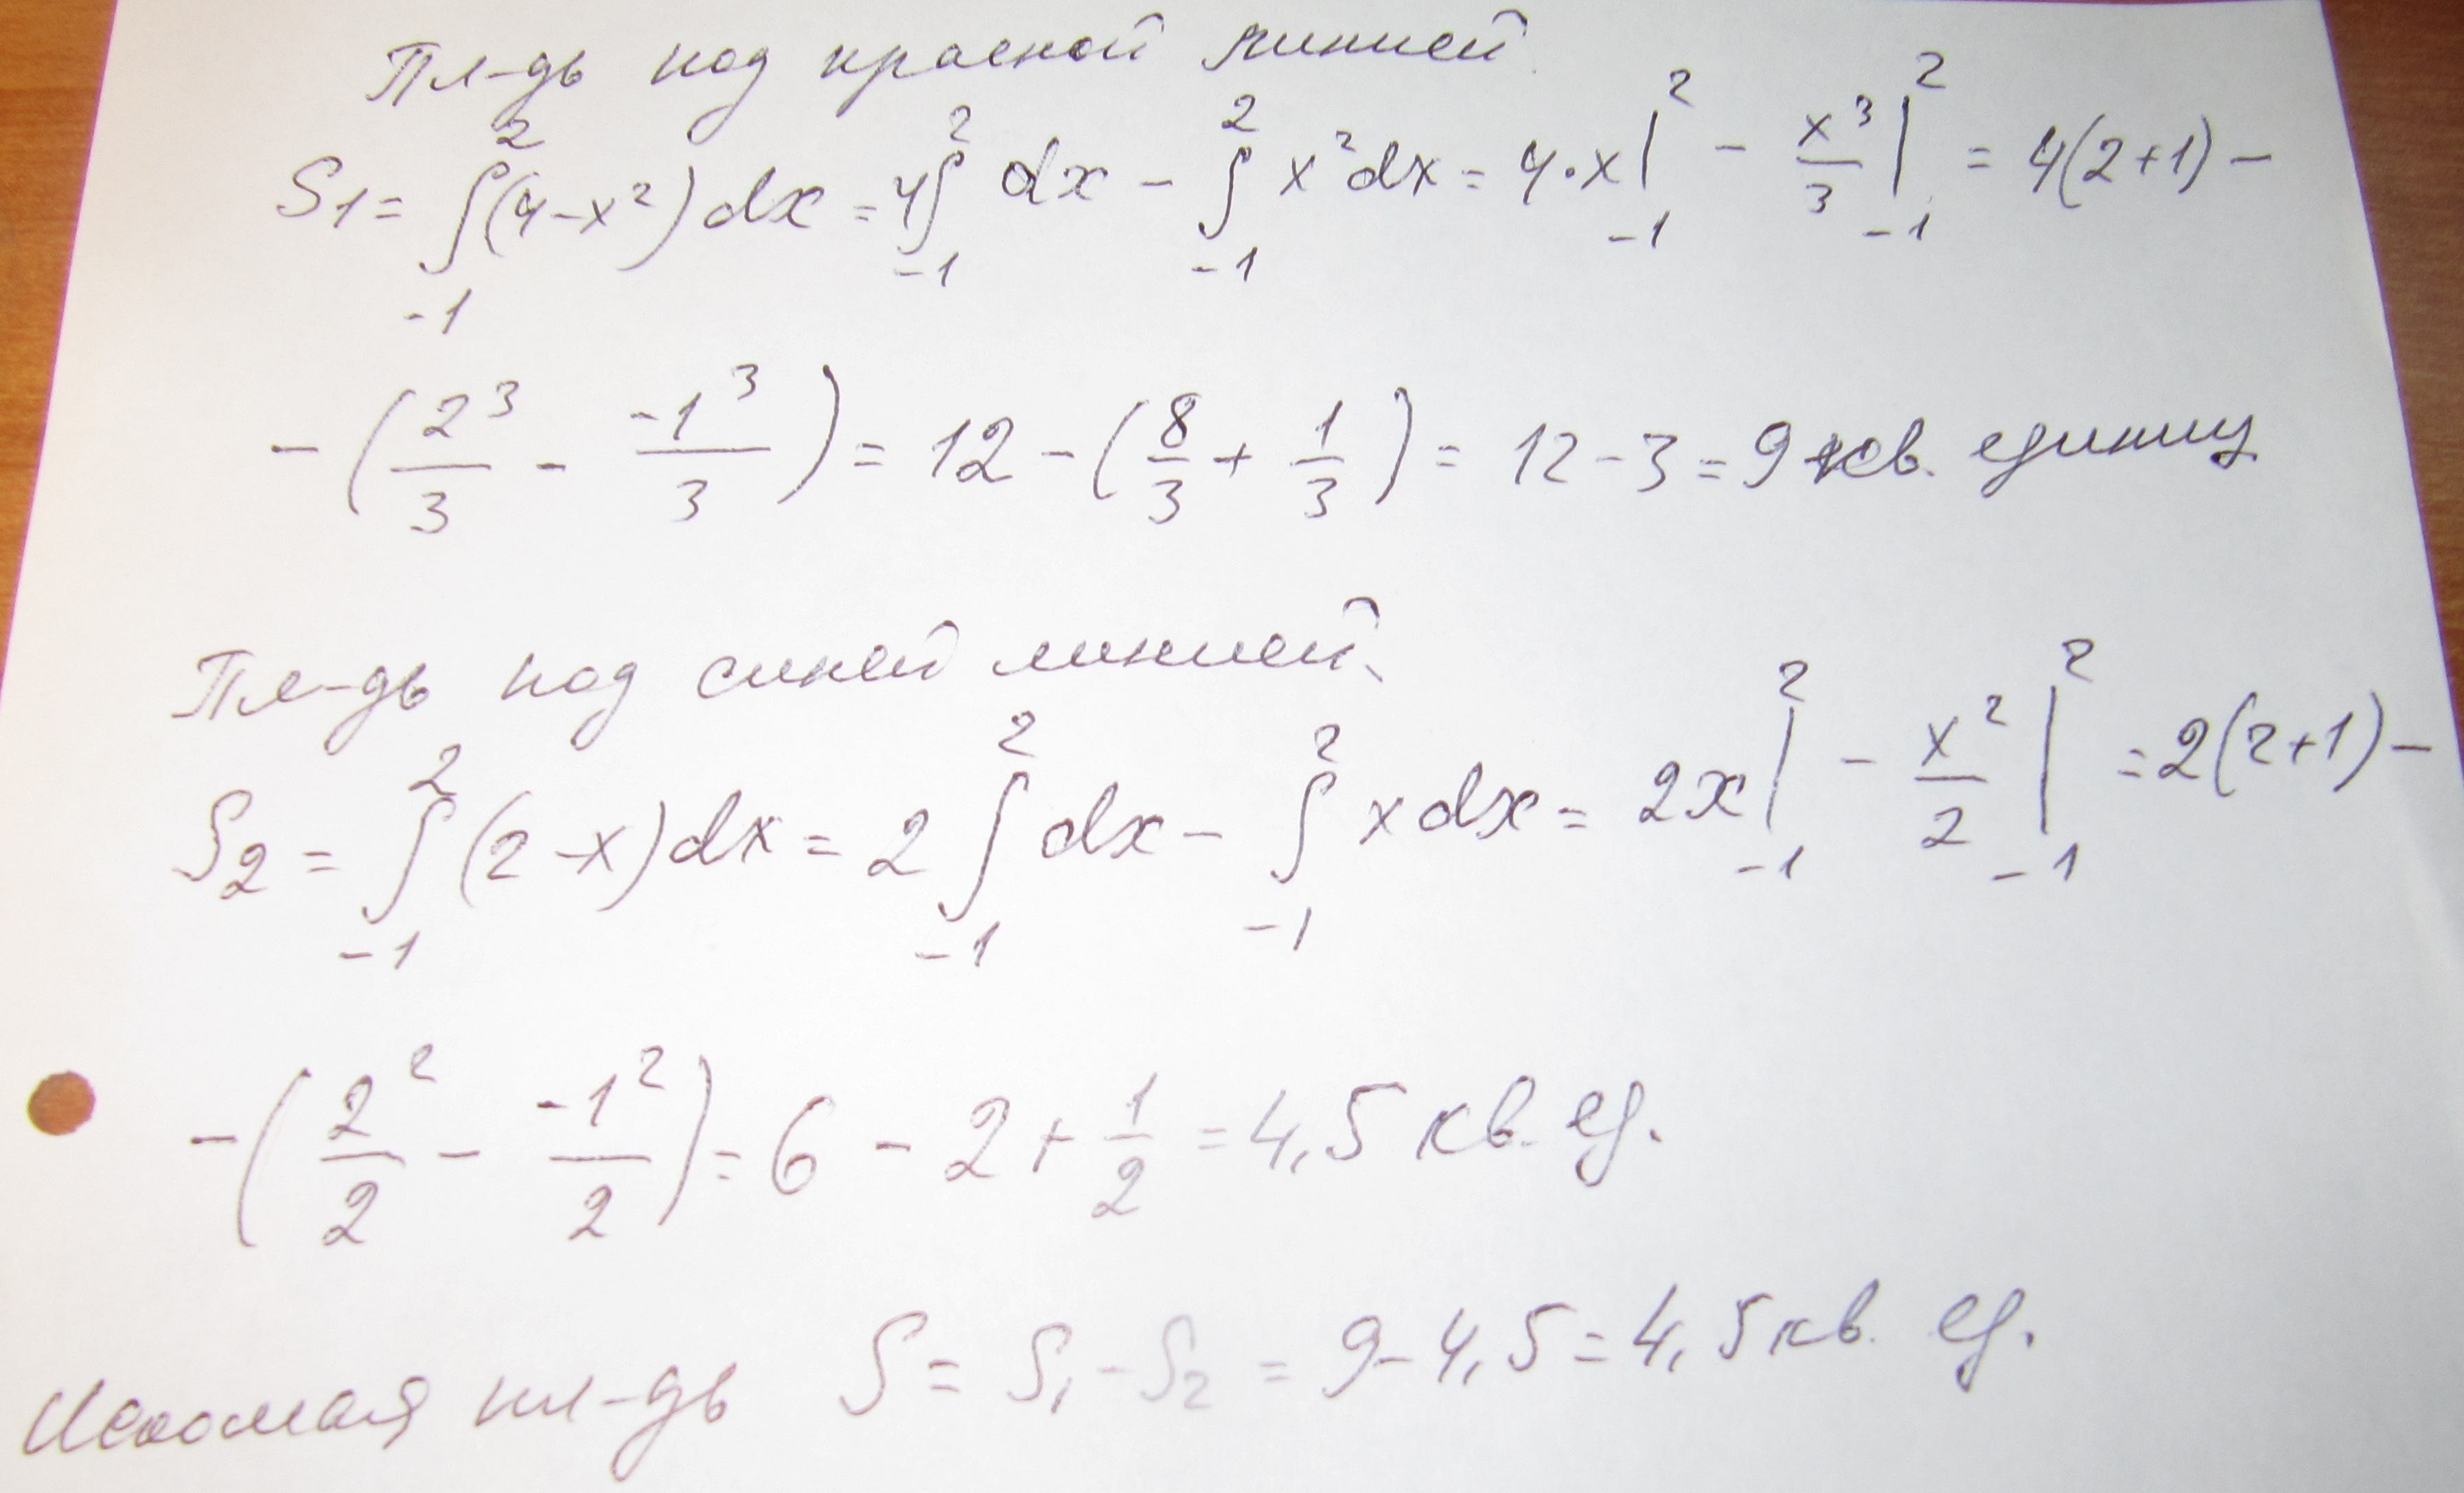 Пл-дь под красной линией
S1 = ∫₋₁² (4-x²)dx = 4∫₋₁² dx - ∫₋₁² x²dx = 4·x|₋₁² - x³/3|₋₁² = 4(2+1) -
- (2³/3 - -1³/3) = 12 - (8/3 + 1/3) = 12 - 3 = 9 кв. единиц
Пл-дь под синей линией
S2 = ∫₋₁² (2-x)dx = 2∫₋₁² dx - ∫₋₁² xdx = 2x|₋₁² - x²/2|₋₁² = 2(2+1) -
- (2²/2 - -1²/2) = 6 - 2 + 1/2 = 4,5 кв. ед.
Искомая пл-дь S = S₁ - S₂ = 9 - 4,5 = 4,5 кв. ед.